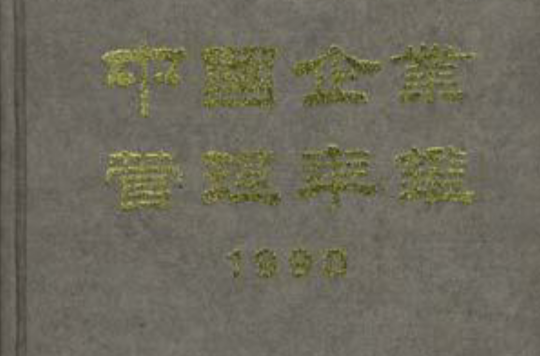 中國企業
管理年鑑
1990